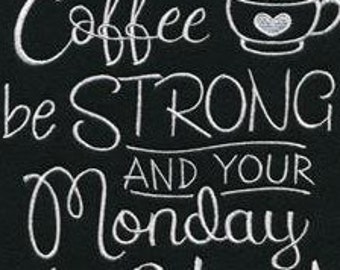 Coffee
be STRONG
AND YOUR
Monday